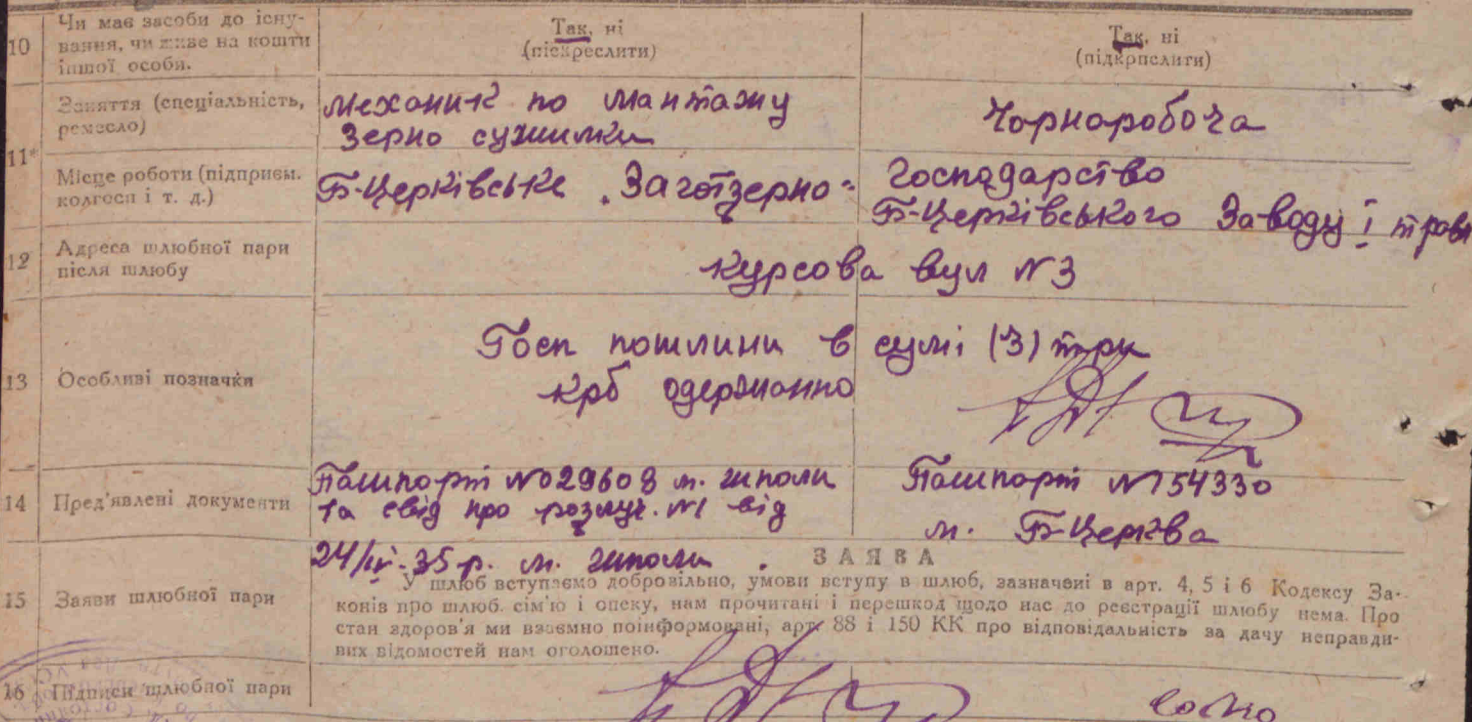 10 Чи має засоби до існування, чи живе на кошти іншої особи.
Так, ні
(підкреслити)
Так, ні
(підкрислити)
11 Заняття (спеціальність, ремесло)
механик по мантажу
Зерно сушилки
Чорноробоча
Місце роботи (підприєм. колгосп і т. д.)
Б-Церківське "Заготзерно"
Господарство
Б-Церківського Заводу і
12 Адреса шлюбної пари після шлюбу
Курсова вул № 3
13 Особливі позначки
Госп пошлини в сумі (3) три
крб одержанно
14 Пред'явлені документи
Пашпорт № 029608 м. Шполи
та свід про розлуч. №1 від
24/IV-35 р. м. Шполи
Пашпорт № 154330
м. Б-Церква
15 Заяви шлюбної пари
ЗАЯВА
У шлюб вступаємо добровільно, умови вступу в шлюб, зазначені в арт. 4, 5 і 6 Кодексу За-
конів про шлюб. сім'ю і опеку, нам прочитані і перешкод щодо нас до реєстрації шлюбу нема. Про
стан здоров'я ми взаємно поінформовані, арт. 88 і 150 КК про відповідальність за дачу неправди-
вих відомостей нам оголошено.
16 Підписи шлюбної пари